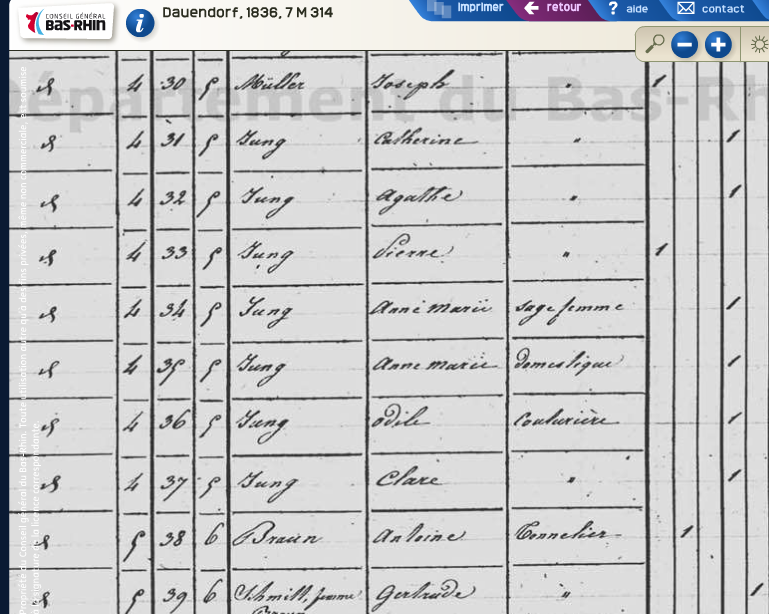 CONSEIL GÉNÉRAL
BAS-RHIN
Dauendorf, 1836, 7 M 314
imprimer retour ? aide contact
Département du Bas-Rh
4 30 5 Müller Joseph " 1
4 31 5 Jung Catherine " 1
4 32 5 Jung Agathe " 1
4 33 5 Jung Pierre " 1
4 34 5 Jung Anne marie sage femme 1
4 35 5 Jung Anne marie domestique 1
4 36 5 Jung odile Couturière 1
4 37 5 Jung Clare " 1
5 38 6 Braun Antoine Tonnelier 1
5 39 6 Schmitt, femme Gertrude " 1
Braun
Propriété du Conseil général du Bas-Rhin. Toute utilisation autre qu'à des fins privées, même non commerciale, est soumise
signature de la licence correspondante.